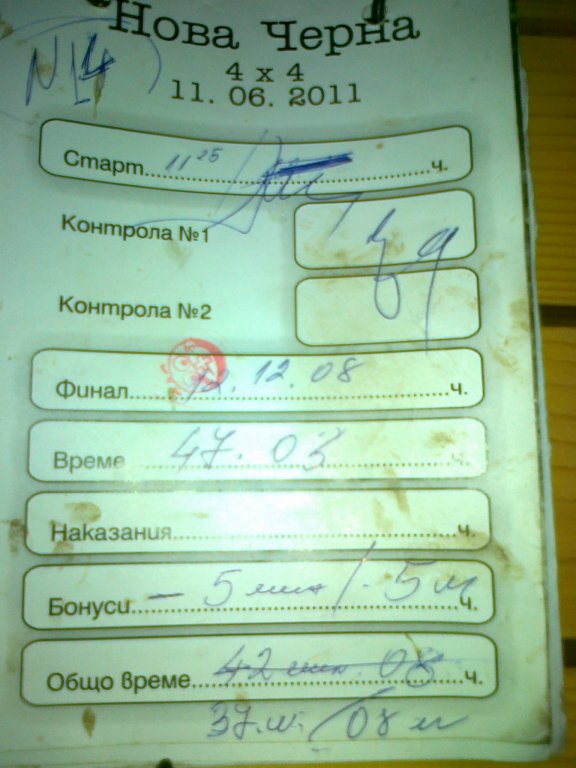 Нова Черна
N 14
4 x 4
11. 06. 2011
Старт 11 25 ч.
Контрола №1
Контрола №2
Финал 12. 12. 08 ч.
Време 47. 03 ч.
Наказания ч.
Бонуси - 5 мин / - 5 м ч.
Общо време 42 мин. 08 ч.
37 м. / 08 м